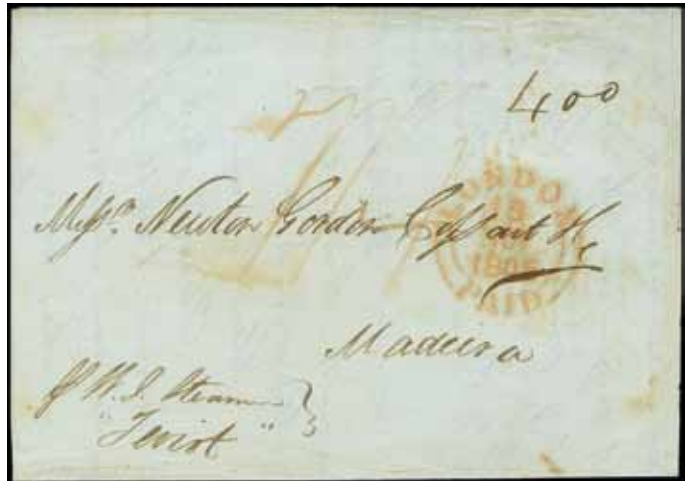 400
Messrs. Newton Gordon Cossart & Co
LONDON
18
PAID
Madeira
p W. I. Steamer
"Teviot"